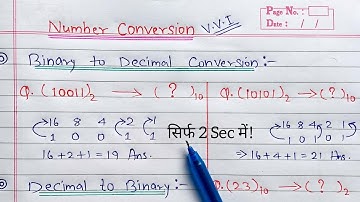 Number Conversion V.V.I
Page No.:
Date : / /
Binary to Decimal Conversion :-
Q. (10011)₂ → ( ? )₁₀ Q. (10101)₂ → ( ? )₁₀
16 8 4 2 1 16 8 4 2 1
1 0 0 1 1 1 0 1 0 1
सिर्फ 2 Sec में!
16+2+1 = 19 Ans. ⇒ 16+4+1 = 21 Ans.
Decimal to Binary :- Q. (23)₁₀ → ( ? )₂